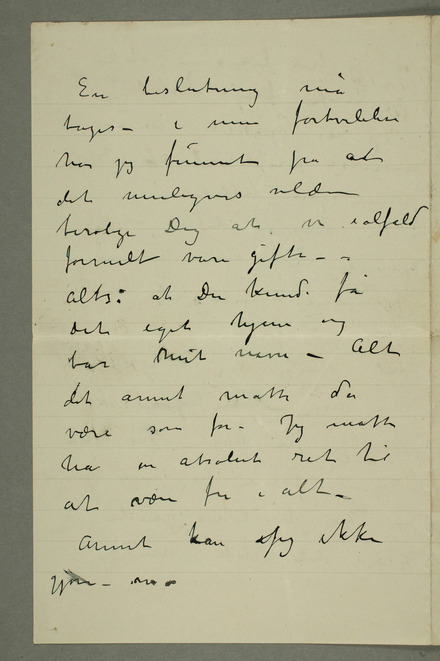 En beslutning må
tages – i min fortvilelse
har jeg funnet på at
det muligvis vilde
berolige Dig at vi ialfald
formelt vare gifte – –
alts: at Du kunde få
det eget hjem og
bar mit navn – Alt
det annet måtte da
være som før – Jeg måtte
ha en absolut ret til
at være fri i alt –
Annet kan jeg ikke
gjøre –